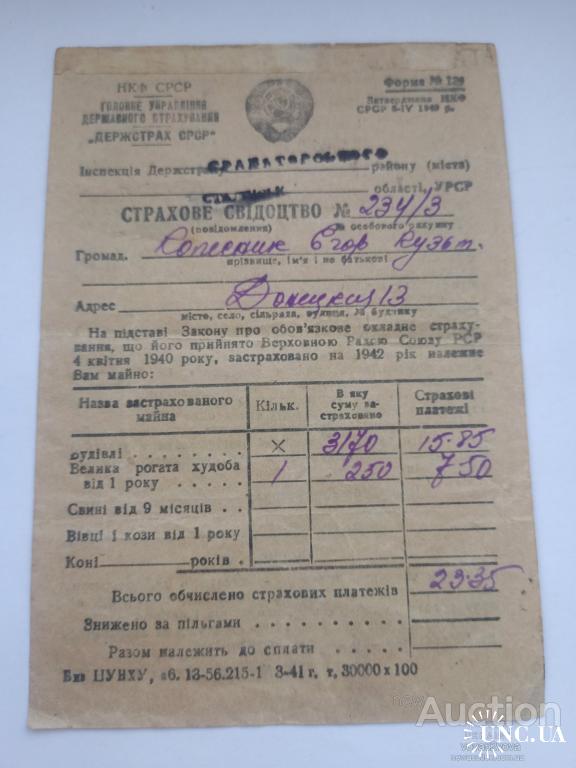 НКФ СРСР
ГОЛОВНЕ УПРАВЛІННЯ
ДЕРЖАВНОГО СТРАХУВАННЯ
„ДЕРЖСТРАХ СРСР"
Форма № 126
Затверджена НКФ
СРСР 5-IV 1940 р.
Інспекція Держстраху району (міста)
області, УРСР
СТРАХОВЕ СВІДОЦТВО № 234/3
(повідомлення) № особового рахунку
Громад. Колесник Егор Кузьм.
прізвище, ім'я і по батькові
Адрес Донецкий 13
місто, село, сільрада, вулиця, № будинку
На підставі Закону про обов'язкове окладне страху-
вання, що його прийнято Верховною Радою Союзу РСР
4 квітня 1940 року, застраховано на 1942 рік належне
Вам майно:
Назва застрахованого майна Кільк. В яку суму за-страховано Страхові платежі
Будівлі × 3170 15-85
Велика рогата худоба
від 1 року 1 250 7-50
Свині від 9 місяців
Вівці і кози від 1 року
Коні років
Всього обчислено страхових платежів 23-35
Знижено за пільгами
Разом належить до сплати
13-56.215-1 3-41 г. т. 30000 х 100
new
Auction
UNC.UA